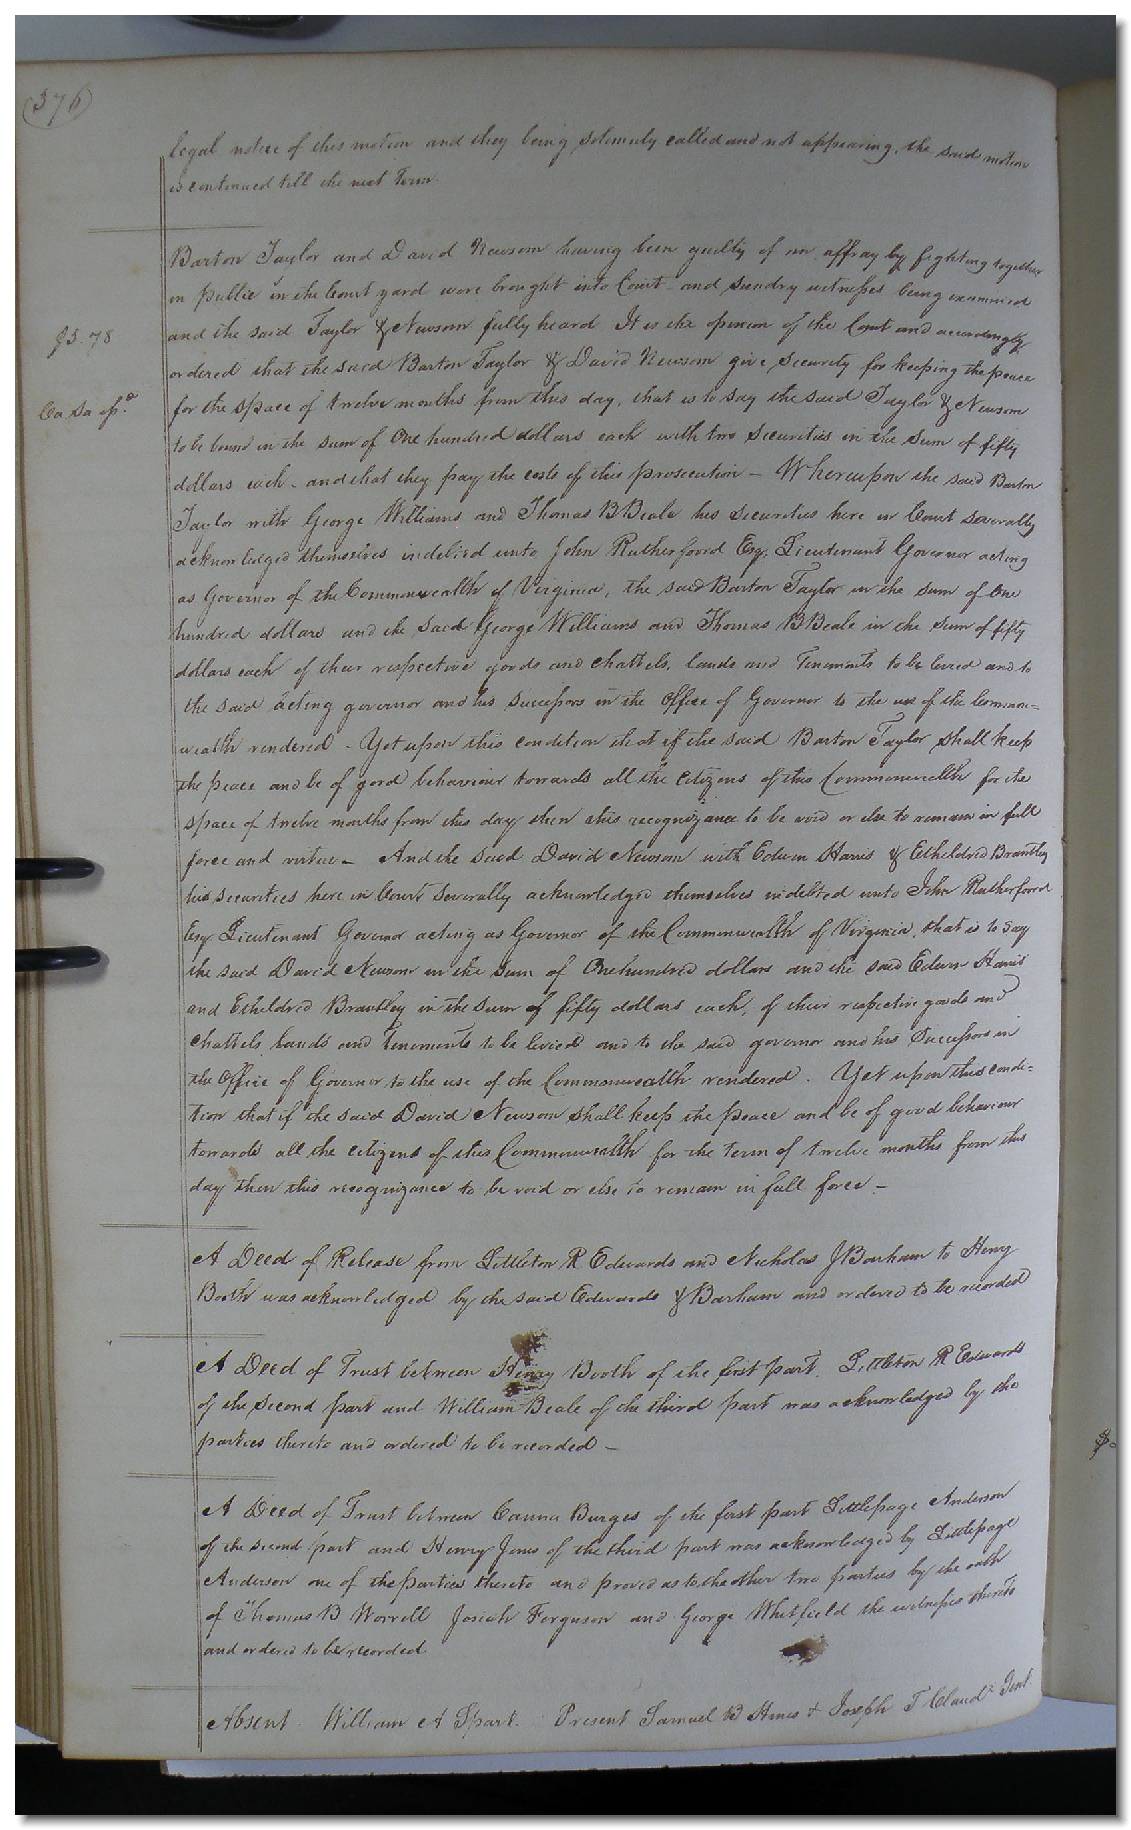 (376)
legal notice of this motion and they being solemnly called and not appearing, the said motion
is continued till the next Term.
Barton Taylor and David Newsom having been guilty of an affray by fighting together
in public in the Court yard were brought into Court and sundry witnesses being examined
and the said Taylor & Newsom fully heard It is the opinion of the Court and accordingly
ordered that the said Barton Taylor & David Newsom give security for keeping the peace
for the space of twelve months from this day, that is to say the said Taylor & Newsom
to be bound in the sum of One hundred dollars each with two securities in the sum of fifty
dollars each - and that they pay the costs of this prosecution - Whereupon the said Barton
Taylor with George Williams, and Thomas B Beale his securities here in Court severally
acknowledged themselves indebted unto John Rutherfoord Esq. Lieutenant Governor acting
as Governor of the Commonwealth of Virginia, the said Barton Taylor in the sum of One
hundred dollars and the said George Williams and Thomas B Beale in the sum of fifty
dollars each of their respective goods and chattels, lands and Tenements to be levied and to
the said acting governor and his successors in the Office of Governor to the use of the Common=
wealth rendered - Yet upon this condition that if the said Barton Taylor shall keep
the peace and be of good behaviour towards all the citizens of this Commonwealth for the
space of twelve months from this day then this recognizance to be void or else to remain in full
force and virtue - And the said David Newsom with Edwin Harris & Etheldred Brantley
his securities here in Court severally acknowledged themselves indebted unto John Rutherfoord
Esq Lieutenant Govenor acting as Governor of the Commonwealth of Virginia, that is to say
the said David Newsom in the sum of One hundred dollars and the said Edwin Harris
and Etheldred Brantley in the sum of fifty dollars each, of their respective goods and
chattels lands and Tenements to be levied and to the said governor and his successors in
the Office of Governor to the use of the Commonwealth rendered. Yet upon this condi=
tion that if the said David Newsom shall keep the peace and be of good behaviour
towards all the citizens of this Commonwealth for the term of twelve months from this
day then this recognizance to be void or else to remain in full force -
A Deed of Release from Littleton R Edwards and Nicholas J Barham to Henry
Booth was acknowledged by the said Edwards & Barham and ordered to be recorded
A Deed of Trust between Henry Booth of the first part. Littleton R Edwards
of the second part and William Beale of the third part was acknowledged by the
parties thereto and ordered to be recorded -
A Deed of Trust between Burges of the first part Littlepage Anderson
of the second part and Henry Jones of the third part was acknowledged by Littlepage
Anderson one of the parties thereto and proved as to the other two parties by the oath
of Thomas B Worrell Josiah Ferguson and George Whitfield the witnesses thereto
and ordered to be recorded
Absent William A Spark. Present Samuel B Hines & Joseph T Claud Gent